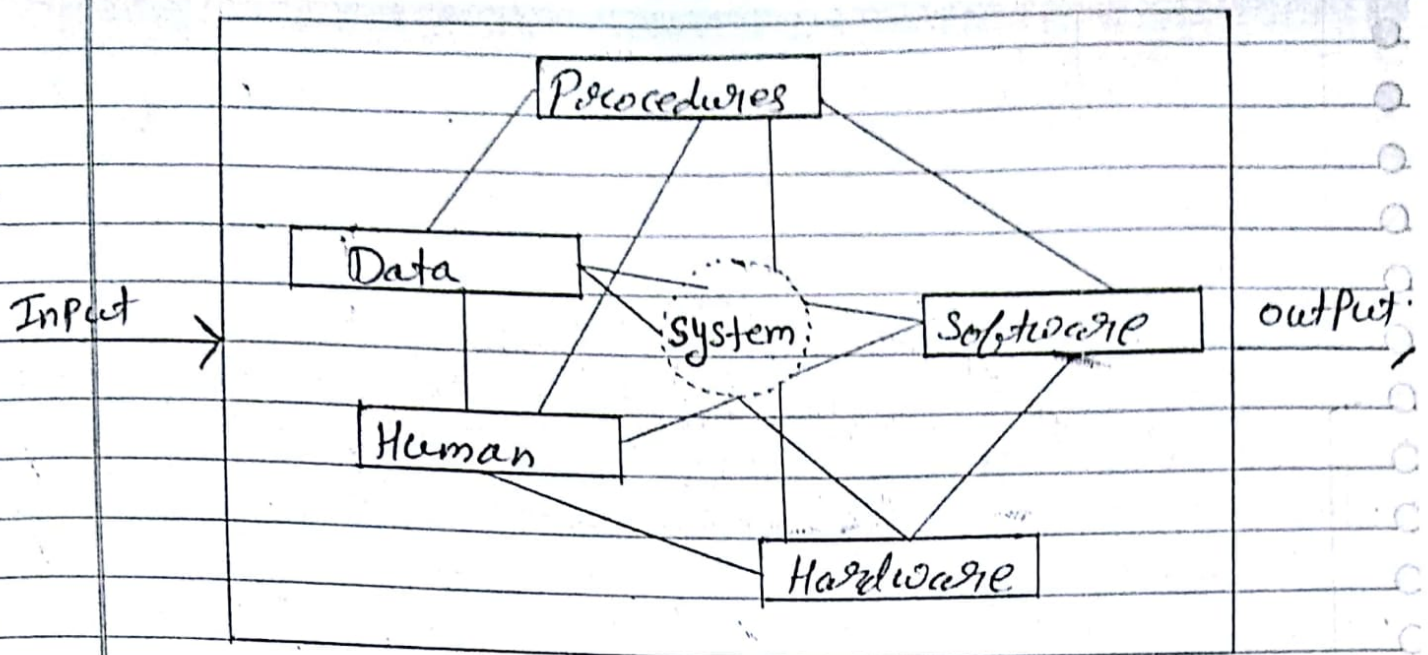 Procedures
Data
Input
system
Software
output
Human
Hardware